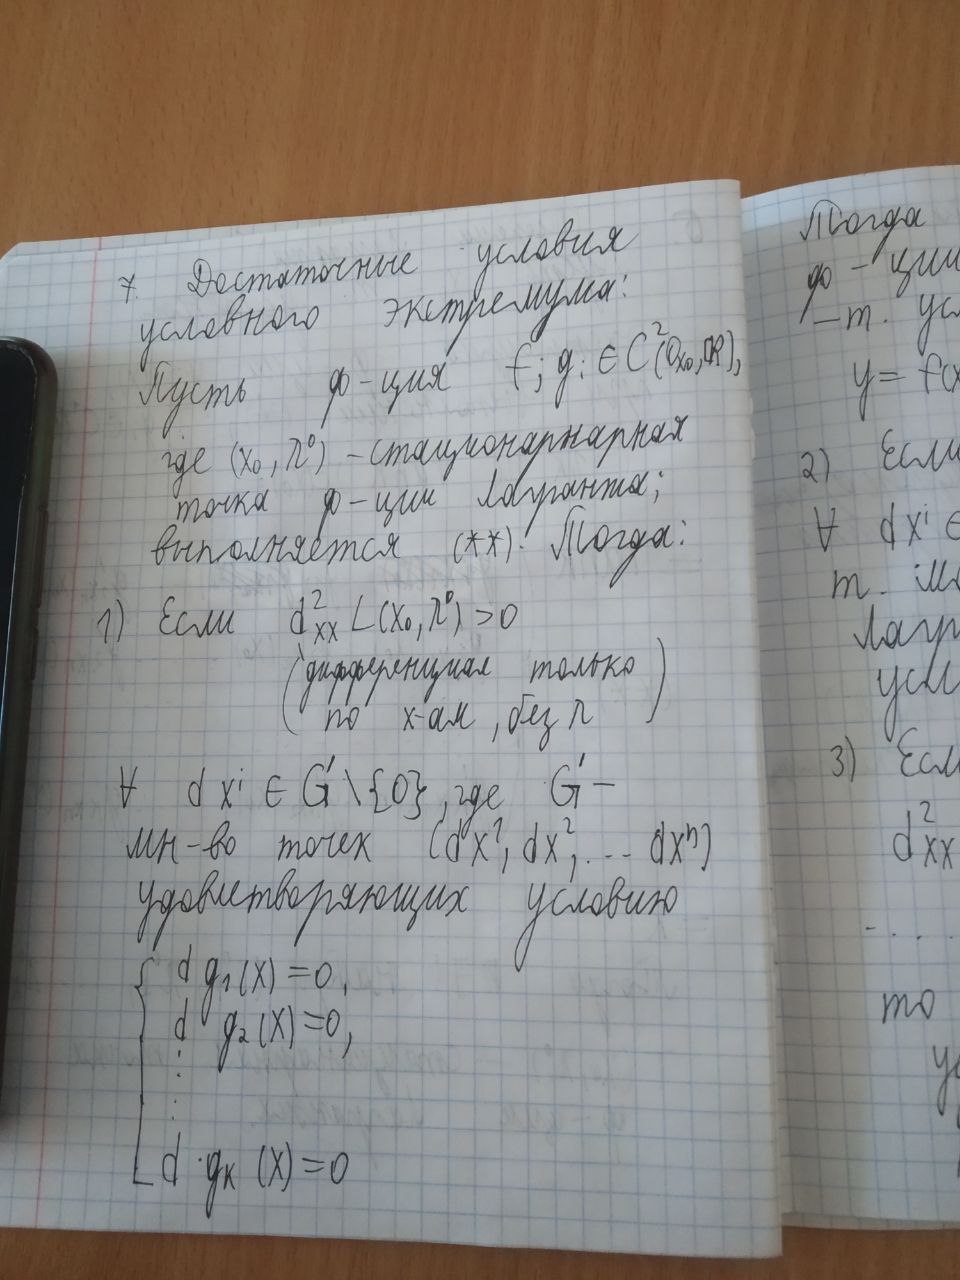 7. Достаточные условия
условного экстремума:
Пусть ф-ция f; gᵢ ∈ C²(Oₓ₀, ℝ),
где (x₀, λ⁰) - стационарнарная
точка ф-ции Лагранжа;
выполняется (**). Тогда:
1) Если d²ₓₓ L(x₀, λ⁰) > 0
(дифференциал только
по х-ам, без λ)
∀ dxⁱ ∈ G' \ {0}, где G' –
мн-во точек (dx¹, dx², ... dxⁿ)
удовлетворяющих условию
d g₁(x) = 0,
d g₂(x) = 0,
⋮
⋮
d gₖ (x) = 0
Тогда
ф-ции
-т. ус
y = f(x
2) Если
∀ dxⁱ ∈
т.
Лагр
усл
3) Если
d²ₓₓ
. . . .
то